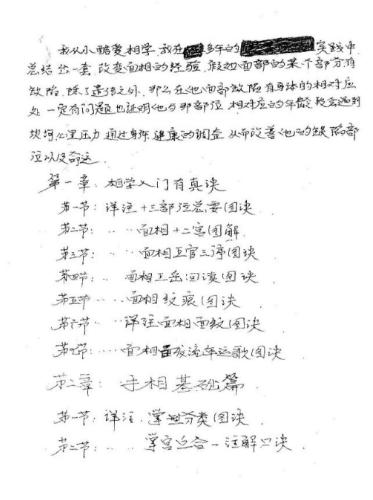 我从小酷爱相学 我在 多年的 实践中
总结出一套 改变面相的经验 假如面部的某个部分有
缺陷 除了遗传之外 那么在他面部缺陷有身体的相对应
处一定有问题也证明他与那部位 相对应的年龄段会遇到
坎坷心里压力 通过身体健康的调整 从而改善他的缺陷部
位以及命运.
第一章: 相学入门有真诀
第一节: 详注十三部位总要图诀
第二节: ‥‥面相十二宫图解
第三节: ‥‥面相五官三停图诀
第四节: ‥面相五岳四渎图诀
第五节 ‥‥面相纹痕图诀
第六节 详注面相面纹图诀
第七节: ‥‥面相 流年运歌图诀
第二章: 手相基础篇
第一节: 详注. 掌型分类图诀
第二节: ‥‥掌宫 合一注解口诀.